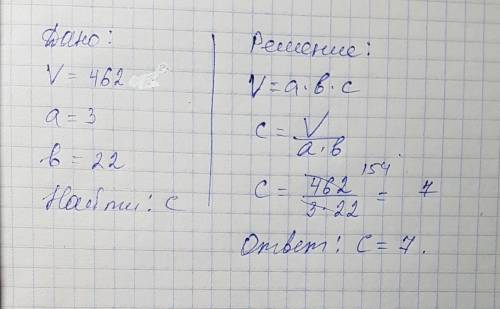 Дано:
V = 462
a = 3
в = 22
Найти: c
Решение:
V = a · в · c
c = V / a · в
c = 462 / 3 · 22 = 7
154
Ответ: c = 7.